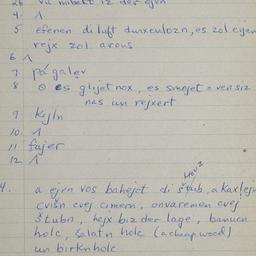 26 vu
4. 1
5 efenen di luft durxculozn, es zol cijen
rejx zol arous
6 1
7 pógaler
8 o es glijet nox, es smojet = ven siz
nas un rejxert
9 kijln
10. 1
11 fajer
12 1
HOUZ
4. a ejrn vos bahejct di štub, a kaxlejn
cvišn cvej cimern, onvaremen cvej
štubn, hejx biz der lage, banucn
holc, šalatn holc (a cheap wood)
un birknholc